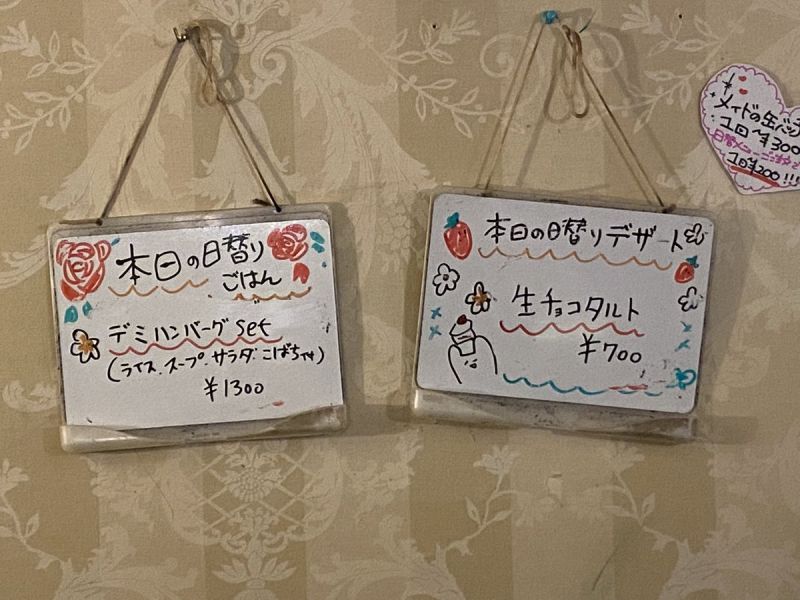 本日の日替り
ごはん
デミハンバーグset
(ライス.スープ.サラダ.こばち付)
¥1300
本日の日替りデザート
生チョコタルト
¥700
メイドの缶バッ
1回 ¥300
1回¥200!!!